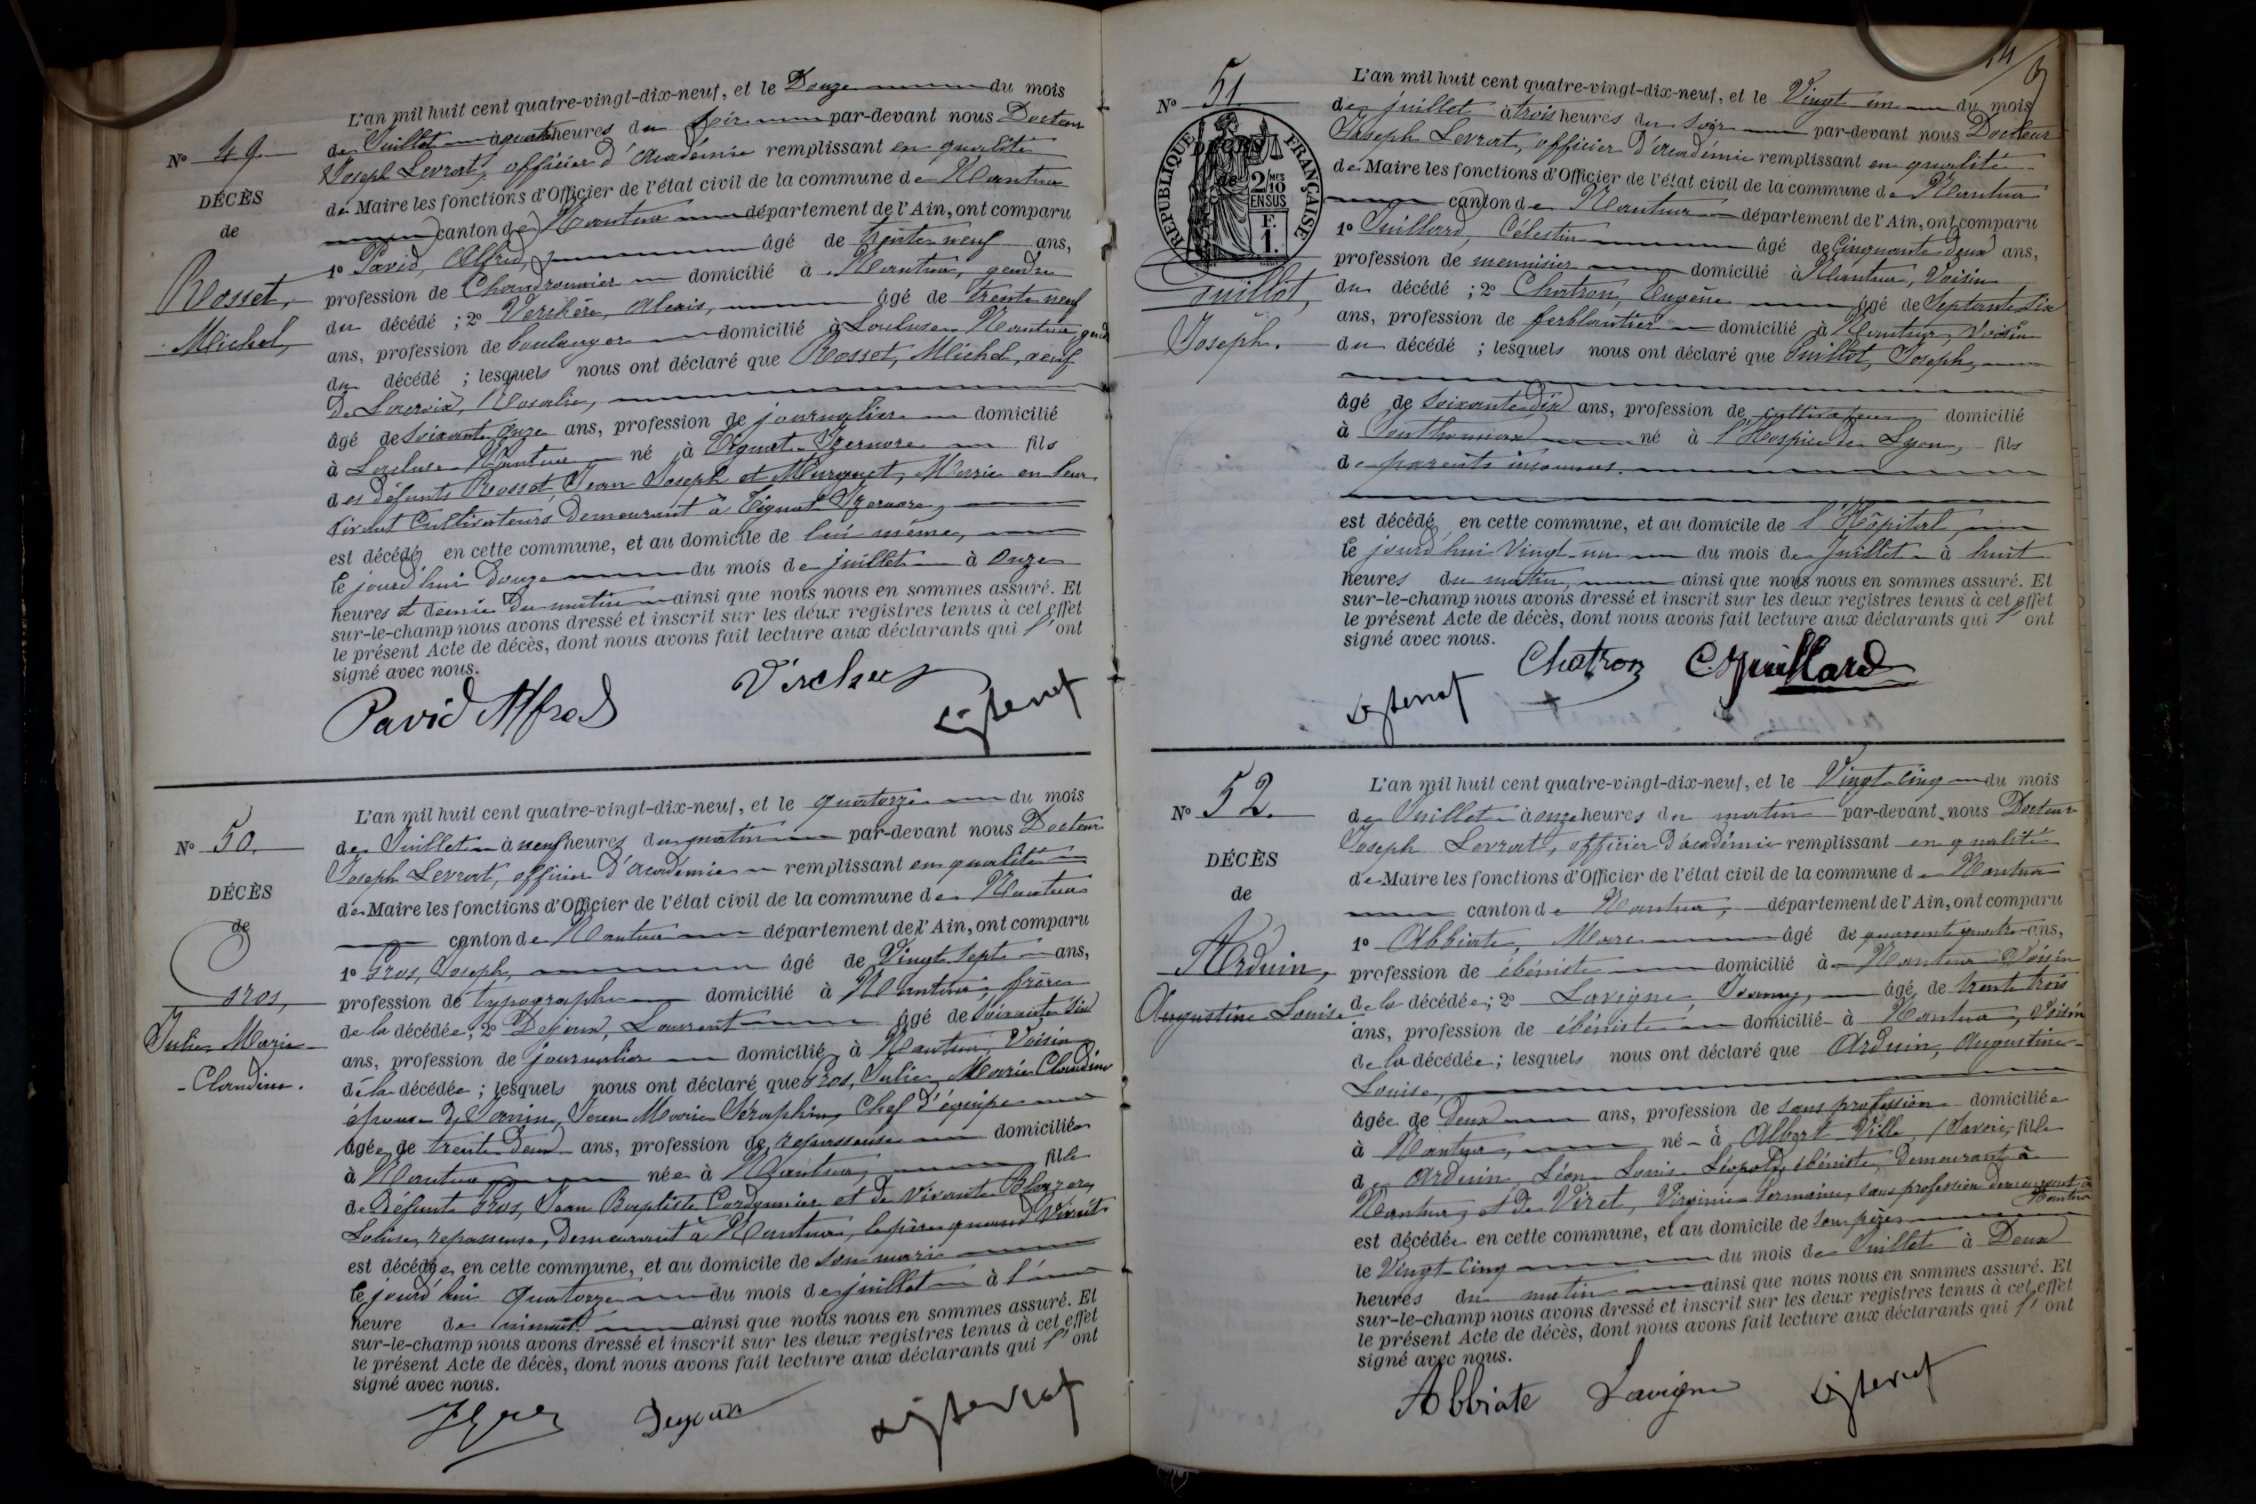 N° 49
DÉCÈS
de
Rosset,
Michel,
L'an mil huit cent quatre-vingt-dix-neuf, et le Douze du mois
de Juillet à quatre heures du soir par-devant nous Docteur
Joseph Levrat, officier d'académie remplissant en qualité
de Maire les fonctions d'Officier de l'état civil de la commune de Nantua
canton de Nantua département de l'Ain, ont comparu
1° Pavid, Alfred, âgé de trente neuf ans,
profession de Chaudronnier domicilié à Nantua, gendre
du décédé ; 2° Verchère, Alexis, âgé de trente neuf
ans, profession de boulanger domicilié à Lacluse Nantua
du décédé ; lesquels nous ont déclaré que Rosset, Michel, veuf
De Lacroix, Rosalie,
âgé de Soixante onze ans, profession de journalier domicilié
à Lacluse Nantua né à Tignat Izernore fils
des défunts Rosset Jean Joseph et Marie en leur
vivant Cultivateurs Demeurant à Tignat Izernore,
est décédé en cette commune, et au domicile de lui même,
le jourd'hui Douze du mois de juillet à onze
heures et demie du matin ainsi que nous nous en sommes assuré. Et
sur-le-champ nous avons dressé et inscrit sur les deux registres tenus à cet effet
le présent Acte de décès, dont nous avons fait lecture aux déclarants qui l'ont
signé avec nous.
Pavid Alfred
N° 50.
DÉCÈS
de
Gros,
Julie Marie
Claudine.
L'an mil huit cent quatre-vingt-dix-neuf, et le quatorze du mois
de Juillet à neuf heures du matin par-devant nous Docteur
Joseph Levrat, officier d'académie remplissant en qualité
de Maire les fonctions d'Officier de l'état civil de la commune de Nantua
canton de Nantua département de l'Ain, ont comparu
1° Gros, Joseph, âgé de Vingt Sept ans,
profession de typographe domicilié à Nantua, frère
de la décédée ; 2° Dejoux, Laurent âgé de Soixante dix
ans, profession de journalier domicilié à Nantua Voisin
de la décédée ; lesquels nous ont déclaré que Gros, Julie Marie Claudine
épouse de Jean Marie Séraphin, Chef d'équipe
âgée de trente deux ans, profession de repasseuse domiciliée
à Nantua née à Nantua, fille
de Défunt Gros, Jean Baptiste Cordonnier et de Vivante
Louise, repasseuse, demeurant à Nantua, le père quand Vivait
est décédée en cette commune, et au domicile de son mari
le jourd'hui quatorze du mois de juillet à l'
heure de ainsi que nous nous en sommes assuré. Et
sur-le-champ nous avons dressé et inscrit sur les deux registres tenus à cet effet
le présent Acte de décès, dont nous avons fait lecture aux déclarants qui l'ont
signé avec nous.
Dejoux
N° 51
RÉPUBLIQUE FRANÇAISE
DÉCÈS
de
2/10
EN SUS
F.
1.
Juillot,
Joseph.
L'an mil huit cent quatre-vingt-dix-neuf, et le Vingt un du mois
de juillet à trois heures du soir par-devant nous Docteur
Joseph Levrat, officier d'académie remplissant en qualité
de Maire les fonctions d'Officier de l'état civil de la commune de Nantua
canton de Nantua département de l'Ain, ont comparu
1° Juillard, Célestin âgé de Cinquante deux ans,
profession de menuisier domicilié à Nantua, Voisin
du décédé ; 2° Chatron, Eugène âgé de Septante six
ans, profession de ferblantier domicilié à Nantua, Voisin
du décédé ; lesquels nous ont déclaré que Juillot, Joseph,
âgé de Soixante dix ans, profession de cultivateur domicilié
à né à l'Hospice de Lyon, fils
de parents inconnus.
est décédé en cette commune, et au domicile de l'Hôpital
le jourd'hui Vingt-un du mois de Juillet à huit
heures du matin, ainsi que nous nous en sommes assuré. Et
sur-le-champ nous avons dressé et inscrit sur les deux registres tenus à cet effet
le présent Acte de décès, dont nous avons fait lecture aux déclarants qui l'ont
signé avec nous.
Chatron C Juillard
N° 52.
DÉCÈS
de
Arduin,
Augustine Louise
L'an mil huit cent quatre-vingt-dix-neuf, et le Vingt-cinq du mois
de Juillet à onze heures du matin par-devant nous Docteur
Joseph Levrat, officier d'académie remplissant en qualité
de Maire les fonctions d'Officier de l'état civil de la commune de Nantua
canton de Nantua, département de l'Ain, ont comparu
1° Abbiate, Marc âgé de quarante quatre ans,
profession de ébéniste domicilié à Nantua Voisin
de la décédée ; 2° Lavigne, Joanny, âgé de trente trois
ans, profession de ébéniste domicilié à Nantua, Voisin
de la décédée ; lesquels nous ont déclaré que Arduin, Augustine
Louise,
âgée de Deux ans, profession de sans profession domiciliée
à Nantua, né à Albert Ville, (Savoie, fille
de Arduin Léon Louis Léopold, ébéniste, Demeurant à
Nantua, et de Viret, Virginie Germaine, sans profession demeurant à
Nantua
est décédée en cette commune, et au domicile de son père
le Vingt-Cinq du mois de Juillet à Deux
heures du matin ainsi que nous nous en sommes assuré. Et
sur-le-champ nous avons dressé et inscrit sur les deux registres tenus à cet effet
le présent Acte de décès, dont nous avons fait lecture aux déclarants qui l'ont
signé avec nous.
Abbiate Lavigne